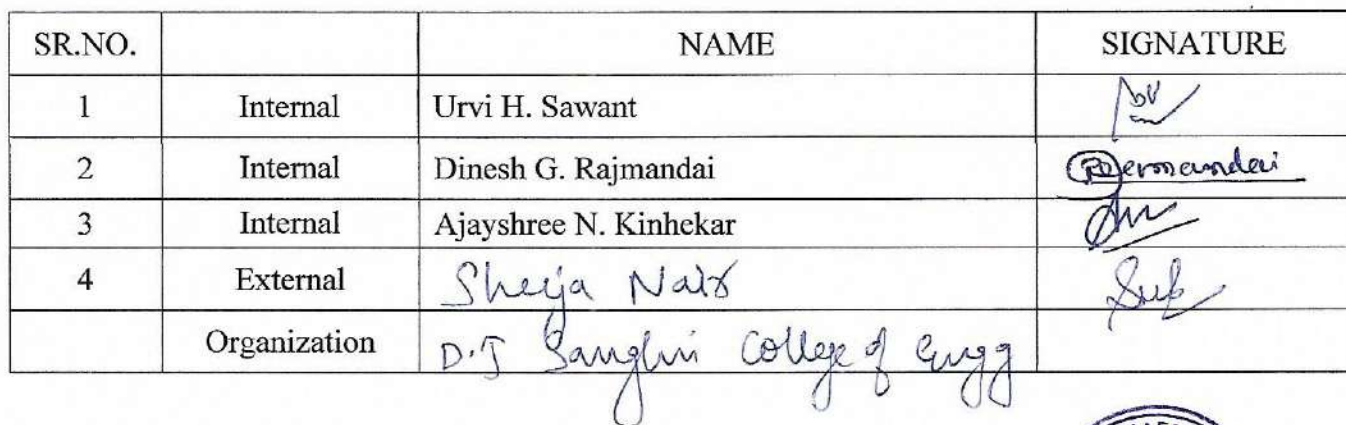 SR.NO. NAME SIGNATURE
1 Internal Urvi H. Sawant
2 Internal Dinesh G. Rajmandai
3 Internal Ajayshree N. Kinhekar
4 External Sheeja Nair
Organization D.J Sanghvi College of Engg